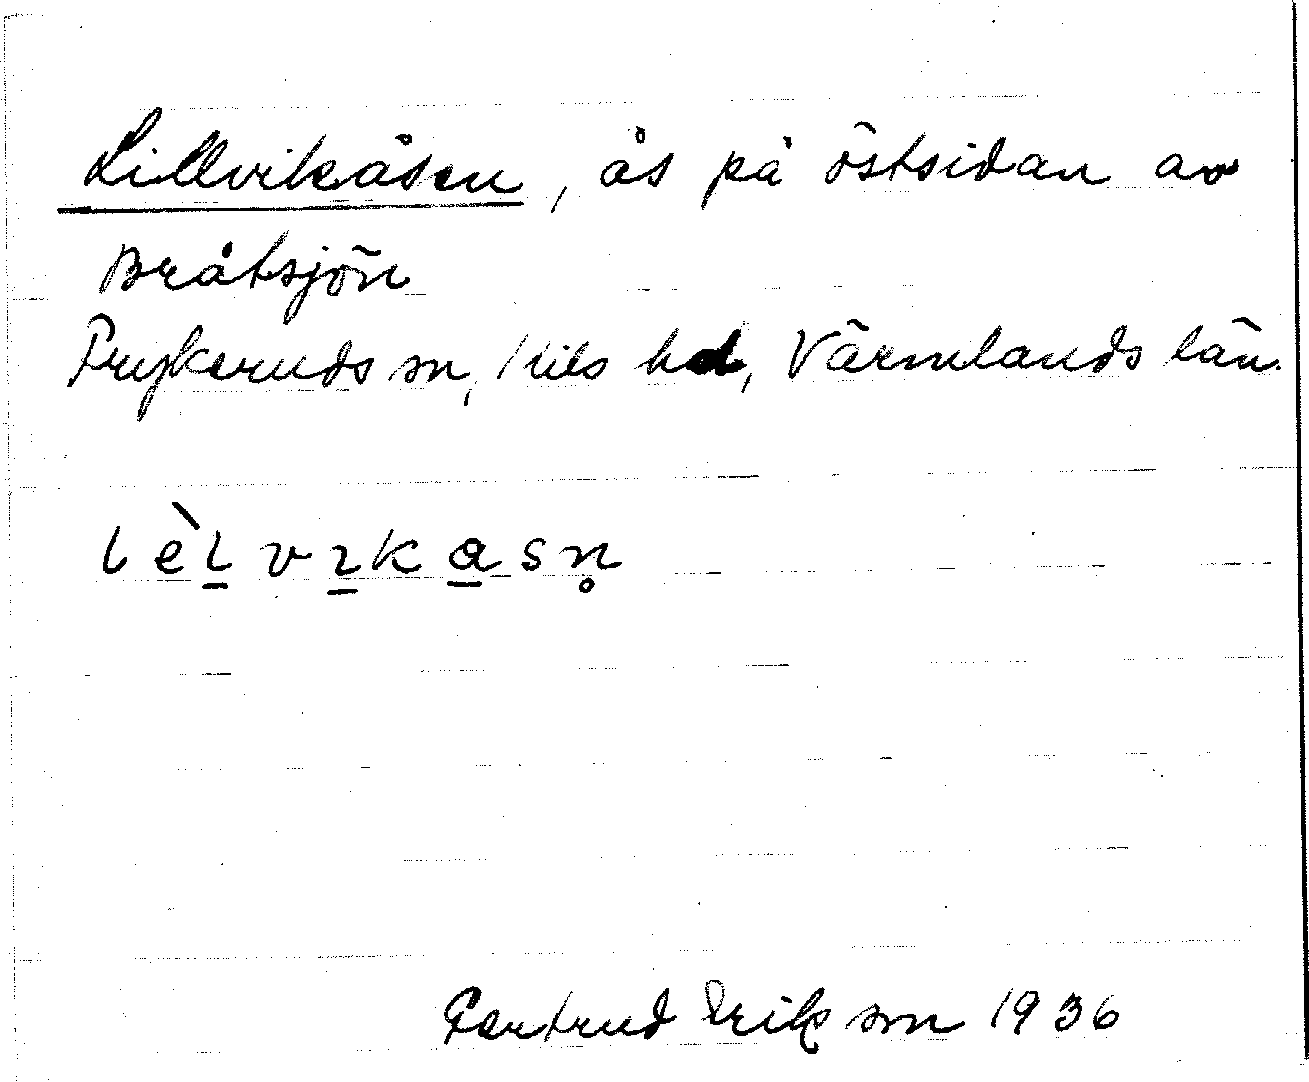 Lillvikåsen, ås på östsidan av
Bråtsjön
Frykeruds sn, Kils hd, Värmlands län.
lèl̠vɪ̠ka̠sn̥
Gertrud Erikson 1936